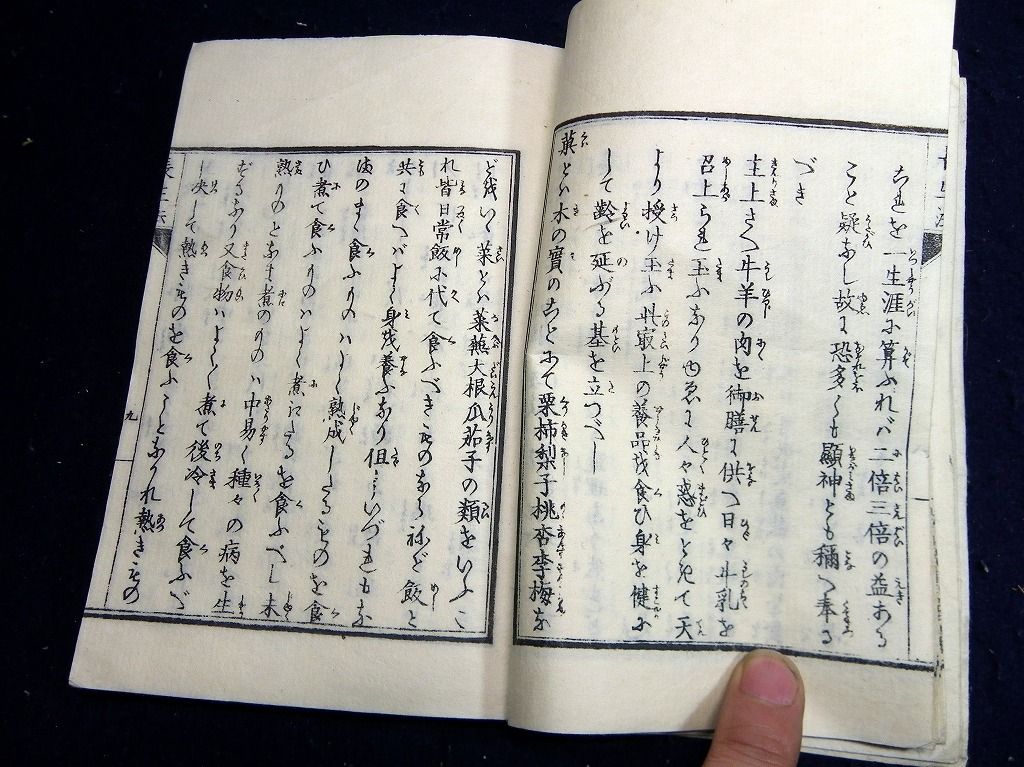 これを一生涯に算ふれバ二倍三倍の益ある
こと疑なし故に恐多くも顯神とも稱へ奉る
べき
主上さへ牛羊の肉を御膳に供へ日々牛乳を
召上られ玉ふなり 人々惑をときて天
より授け玉ふ此最上の養品を食ひ身を健に
して齢を延ぶる基を立つべし
菓とハ木の實のことにて栗柿梨子桃杏李梅な
どをいひ菜とハ菜蕪大根瓜茄子の類をいふこ
れ皆日常飯に代て食ふべきものならねど飯と
共に食へバよく身を養ふなり但しいづれもな
まのまゝ食ふものハよく熟成したるものを食
ひ煮て食ふものハよく煮たるを食ふべし未
熟のと なま煮のものハ中易く種々の病を生
ずるなり又食物ハよくよく煮て後冷して食ふべ
し決して熱きものを食ふことなかれ熱きもの
九